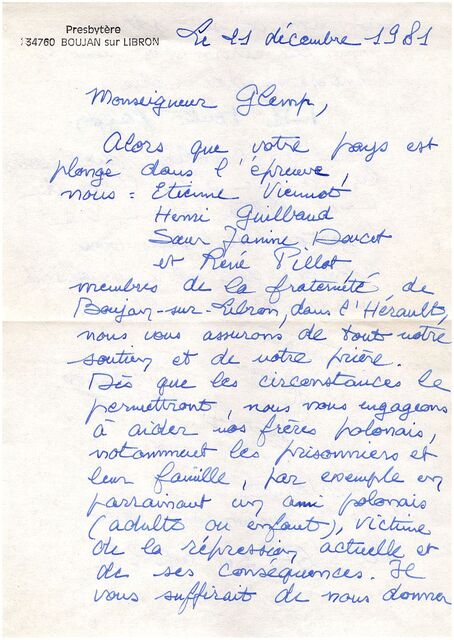 Presbytère
34760 BOUJAN sur LIBRON
Le 21 décembre 1981
Monseigneur Glemp,
Alors que votre pays est
plongé dans l'épreuve,
nous : Etienne Viennot
Henri Guilbaud
Sœur Janine Doucet
et René Pillot
membres de la fraternité de
Boujan-sur-Libron, dans l'Hérault,
nous vous assurons de tout notre
soutien et de notre prière.
Dès que les circonstances le
permettront, nous nous engageons
à aider nos frères polonais,
notamment les prisonniers et
leur famille, par exemple en
parrainant un ami polonais
(adulte ou enfant), victime
de la répression actuelle et
de ses conséquences. Il
vous suffirait de nous donner